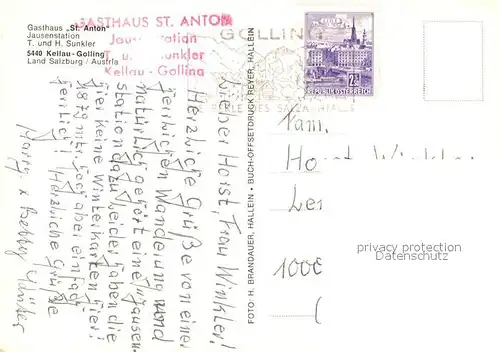 Gasthaus „St. Anton"
Jausenstation
T. und H. Sunkler
5440 Kellau-Golling
Land Salzburg / Austria
GASTHAUS ST. ANTON
Jausenstation
T. u. Sunkler
Kellau-Golling
GOLLING
PERLE DES SALZACHTALES
2.50
REPUBLIK ÖSTERREICH
Lieber Horst, Frau Winkler!
Herzliche Grüße von einer
herrlichen Wanderung und
natürlich gehört eine Jausen
station dazu, leider haben die
hier keine Winterkarten hier!
1879 mtr. hoch aber einfach
herrlich! Herzliche Grüße
Harry & Betty
FOTO: H. BRANDAUER, HALLEIN • BUCH-OFFSETDRUCK REYER, HALLEIN
Fam.
Horst Winkler
1000
privacy protection
Datenschutz